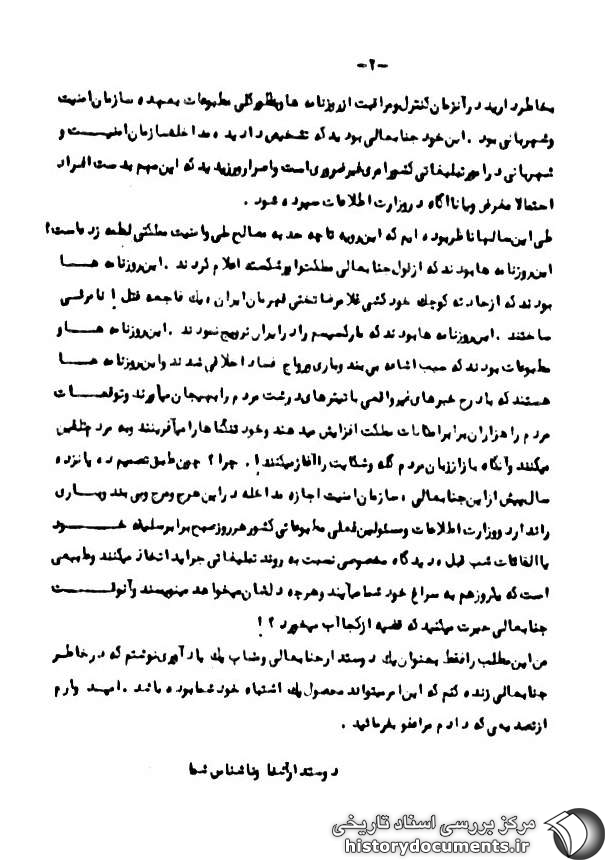 -۲-
بخاطر دارید در آنزمان کنترل و مراقبت از روزنامه ها و بطور کلی مطبوعات بعهده سازمان امنیت
و شهربانی بود . این خود جنابعالی بودید که تشخیص دادید مداخله سازمان امنیت و
شهربانی در امور تبلیغاتی کشور امری غیر ضروری است و اصرار ورزیدید که این مهم بدست افراد
احتمالا مغرض و یا ناآگاه در وزارت اطلاعات سپرده شود .
طی این سالها ناظر بوده ایم که این رویه تا چه حد به مصالح ملی و امنیت مملکتی لطمه زده است؟
این روزنامه ها بودند که از قول جنابعالی مملکت را ورشکسته اعلام کردند . این روزنامه ها
بودند که از حادثه کوچک خودکشی غلامرضا تختی قهرمان ایران ، یک فاجعه قتل ! نا مرئی
ساختند . این روزنامه ها بودند که مارکسیسم را در ایران ترویج نمودند . این روزنامه ها و
مطبوعات بودند که سبب اشاعه بی بند وباری و رواج فساد اخلاقی شدند و این روزنامه ها
هستند که با درج خبرهای غیر واقعی با تیترهای درشت مردم را بهیجان میآورند و توقعات
مردم را هزاران برابر امکانات مملکت افزایش میدهند و خود تنگناها را میآفرینند و به مردم تلقین
میکنند و آنگاه باز از زبان مردم گله و شکایت را آغاز میکنند! . چرا ؟ چون طبق تصمیم ده پانزده
سال پیش از این جنابعالی ، سازمان امنیت اجازه مداخله در این هرج و مرج و بی بند وباری
را ندارد و وزارت اطلاعات و مسئولین فعلی مطبوعاتی کشور هر روز صبح برابر سلیقه خود
یا القائات شب قبل ، دیدگاه مخصوصی نسبت به روند تبلیغاتی جراید اتخاذ میکنند و طبیعی
است که یکروز هم به سراغ خود شما میآیند و هرچه دلشان میخواهد مینویسند و آنوقت
جنابعالی حیرت میکنید که قضیه از کجا آب میخورد ؟ !
من این مطلب را فقط بعنوان یک دوستدار جنابعالی و یک یادآوری نوشتم که در خاطر
جنابعالی زنده کنم که این امر میتواند محصول یک اشتباه خود شما بوده باشد . امید وارم
از تصدیعی که دادم مرا عفو بفرمائید .
دوستدار آشنا و ناشناس شما
مرکز بررسی اسناد تاریخی
historydocuments.ir